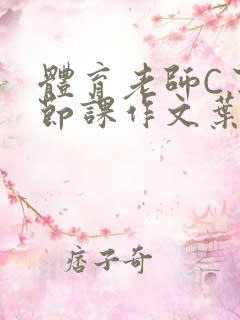 體育老師C
節課作文葉
痞子奇